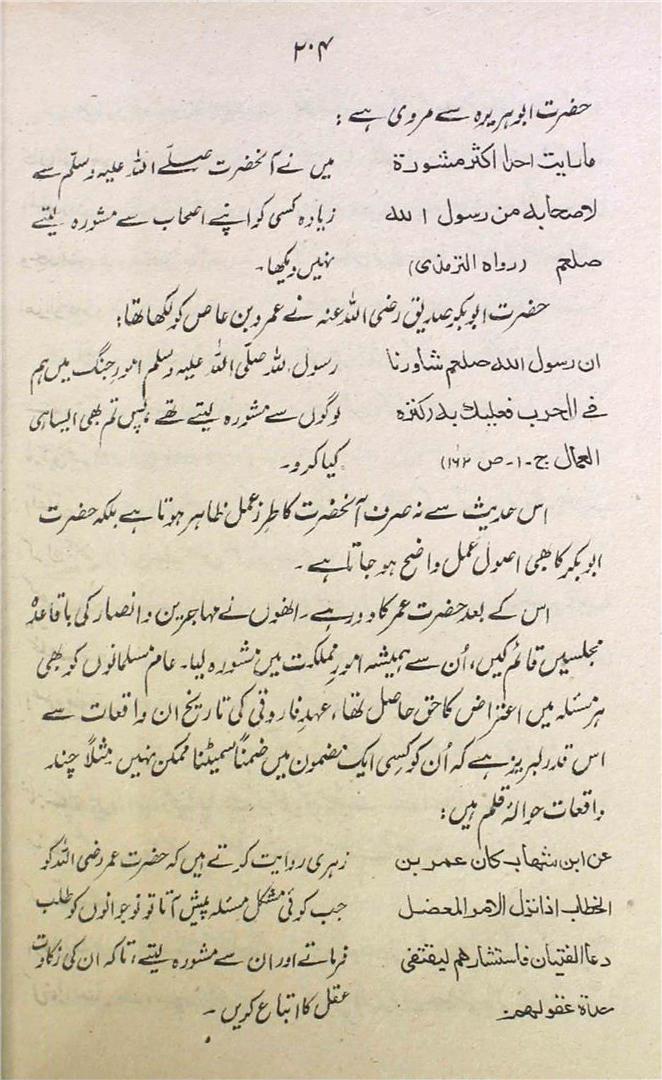 ۲۰۴
حضرت ابوہریرہ سے مروی ہے :
مارایت احدا اکثر مشورة
لاصحابہ من رسول اللہ
صلعم (رواہ الترمذی)
میں نے آنحضرت صلّے اللہ علیہ وسلّم سے
زیادہ کسی کو اپنے اصحاب سے مشورہ لیتے
نہیں دیکھا۔
حضرت ابوبکر صدیق رضی اللہ عنہ نے عمرو بن عاص کو لکھا تھا :
ان رسول اللہ صلعم شاورنا
فی الحرب فعلیک بہ (کنزہ
العمال ج۔۱۔ص ۱۶۲)
رسول اللہ صلّی اللہ علیہ وسلم امورِ جنگ میں ہم
لوگوں سے مشورہ لیتے تھے، پس تم بھی ایسا ہی
کیا کرو۔
اس حدیث سے نہ صرف آنحضرت کا طرزِ عمل ظاہر ہوتا ہے بلکہ حضرت
ابوبکر کا بھی اصول عمل واضح ہو جاتا ہے۔
اس کے بعد حضرت عمر کا دور ہے۔ انھوں نے مہاجرین و انصار کی باقاعدہ
مجلسیں قائم کیں، اُن سے ہمیشہ امورِ مملکت میں مشورہ لیا۔ عام مسلمانوں کو بھی
ہر مسئلہ میں اعتراض کا حق حاصل تھا، عہدِ فاروقی کی تاریخ ان واقعات سے
اس قدر لبریز ہے کہ اُن کو کسی ایک مضمون میں ضمناً سمیٹنا ممکن نہیں مثلاً چند
واقعات حوالۂ قلم ہیں :
عن ابن شہاب کان عمر بن
الخطاب اذا نزل الامر المعضل
دعا الفتیان فاستشارھم لیقتفی
حداۃ عقولھم
زہری روایت کرتے ہیں کہ حضرت عمر رضی اللہ کو
جب کوئی مشکل مسئلہ پیش آتا تو نوجوانوں کو طلب
فرماتے اور ان سے مشورہ لیتے، تاکہ ان کی ذکاوت
عقل کا اتباع کریں۔